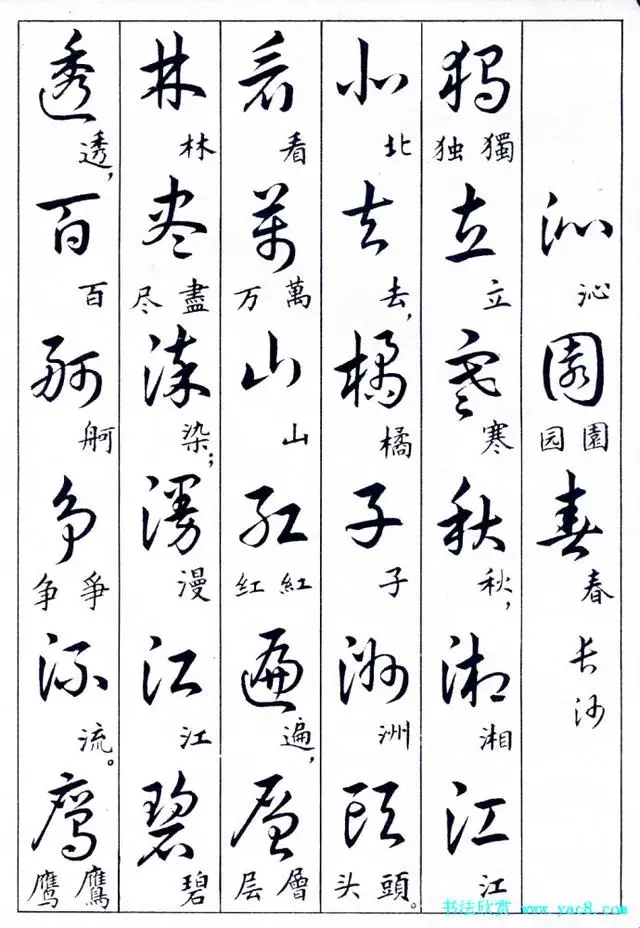 沁 沁 園 园 園 春 春 长沙
獨 独 獨 立 立 寒 寒 秋 秋， 湘 湘 江 江
北 北 去 去， 橘 橘 子 子 洲 洲 頭 头 頭。
看 看 萬 万 萬 山 山 紅 红 紅 遍 遍， 層 层 層
林 林 盡 尽 盡 染 染； 漫 漫 江 江 碧 碧
透 透， 百 百 舸 舸 爭 争 爭 流 流。 鷹 鹰 鷹
书法欣赏 www.yac8.com